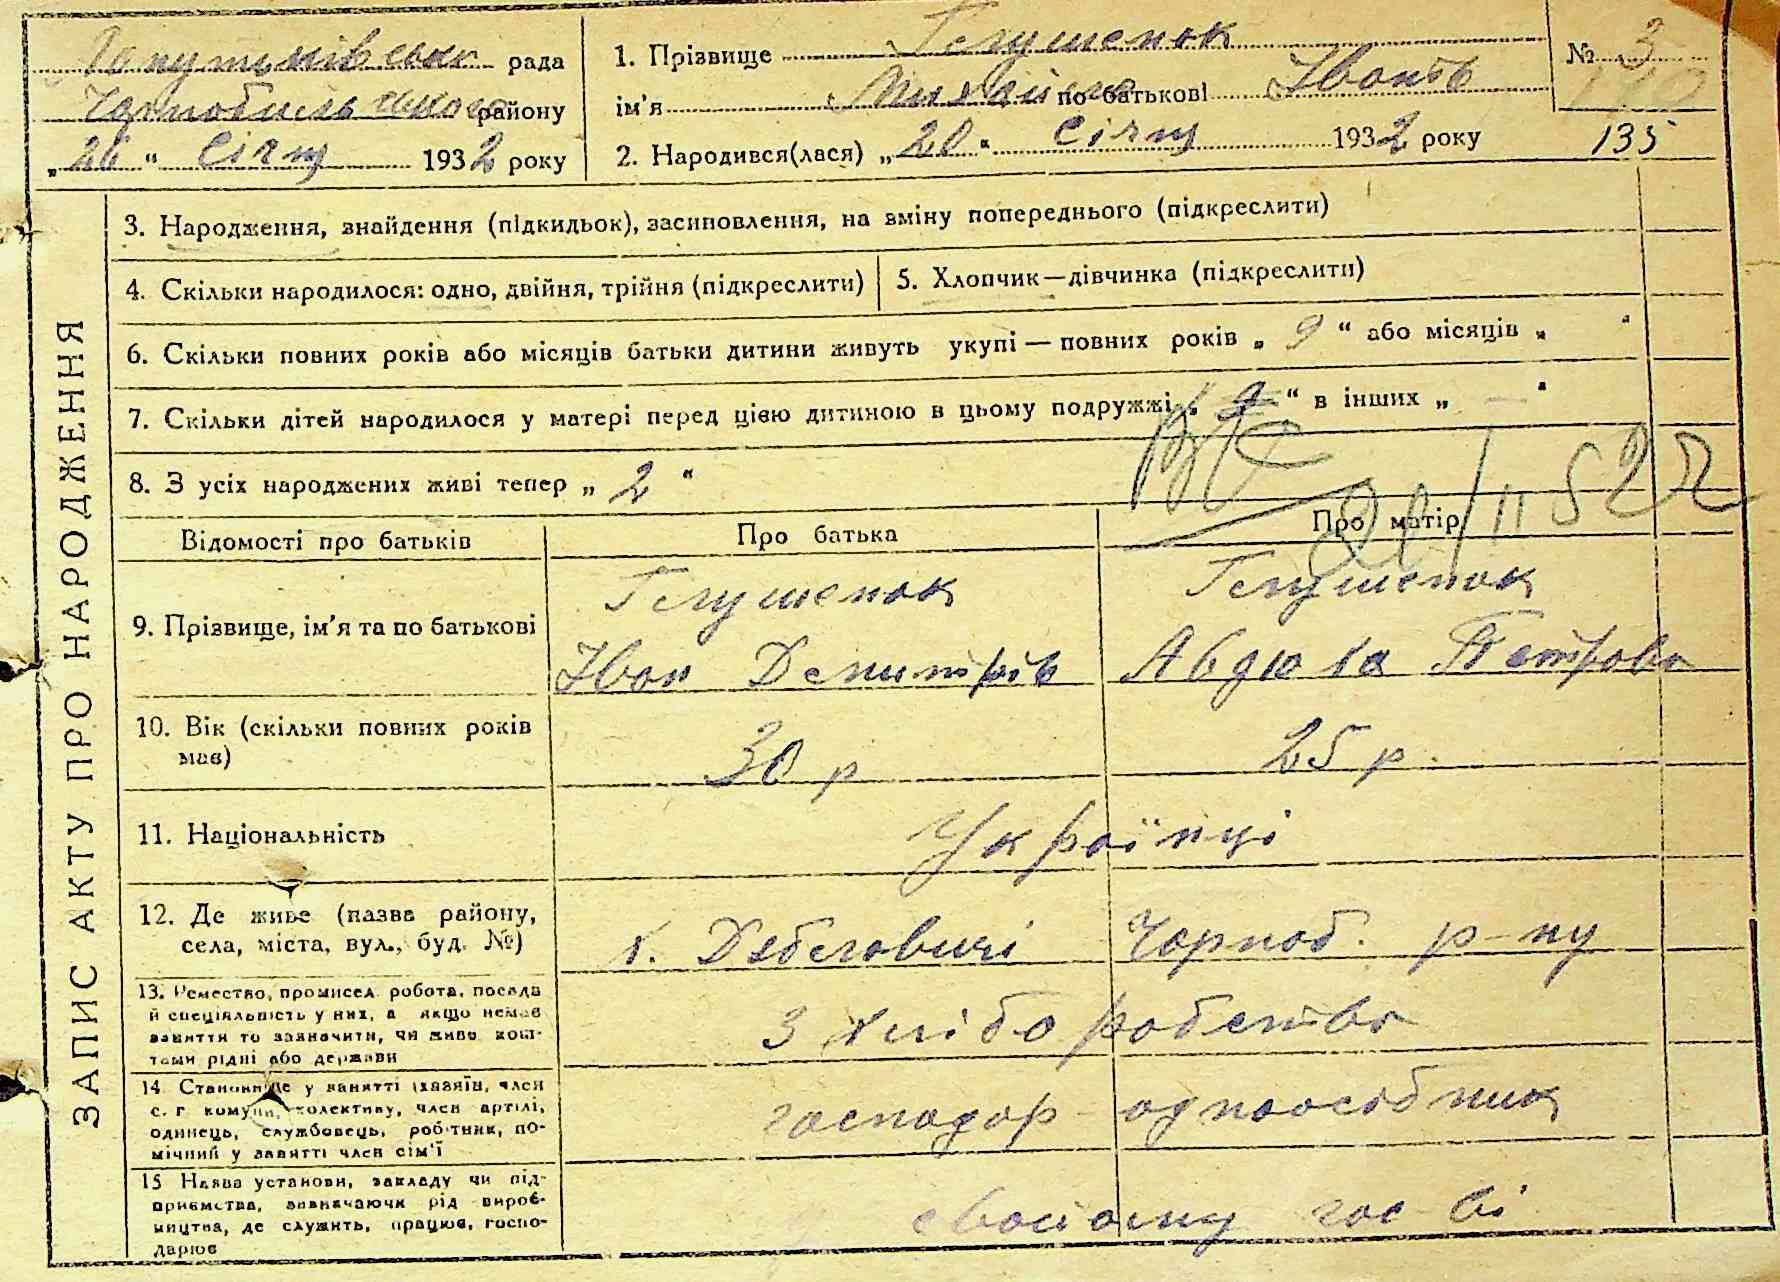 рада
району
„26“ Січня 1932 року
1. Прізвище Гелушенок
ім'я Михайло по батькові Іванів
2. Народився(лася) „20“ Січня 1932 року
№ 3
135
ЗАПИС АКТУ ПРО НАРОДЖЕННЯ
3. Народження, знайдення (підкидьок), засиновлення, на зміну попереднього (підкреслити)
4. Скільки народилося: одно, двійня, трійня (підкреслити)
5. Хлопчик—дівчинка (підкреслити)
6. Скільки повних років або місяців батьки дитини живуть укупі — повних років „9“ або місяців „ “
7. Скільки дітей народилося у матері перед цією дитиною в цьому подружжі „ “ в інших „—“
8. З усіх народжених живі тепер „2“
Відомості про батьків
Про батька
Про матір
9. Прізвище, ім'я та по батькові
Гелушенок
Іван Демитрів
Гелушенок
Авдюха Петрова
10. Вік (скільки повних років
має)
30 р
25 р.
11. Національність
Українці
12. Де живе (назва району,
села, міста, вул., буд. №)
Чорноб. р-ну
13. Ремество, промисел, робота, посада
й спеціяльність у них, а якщо немає
заняття то зазначити, чи живе кош-
тами рідні або держави
З хліборобства
14. Становище у занятті (хазяїн, член
с. г комуни, колективу, член артілі,
одинець, службовець, робітник, по-
мічний у занятті член сім'ї
господар одноосібник
15 Назва установи, закладу чи під-
приємства, визначаючи рід вироб-
ництва, де служить, працює, госпо-
дарює
свойому гос-ві